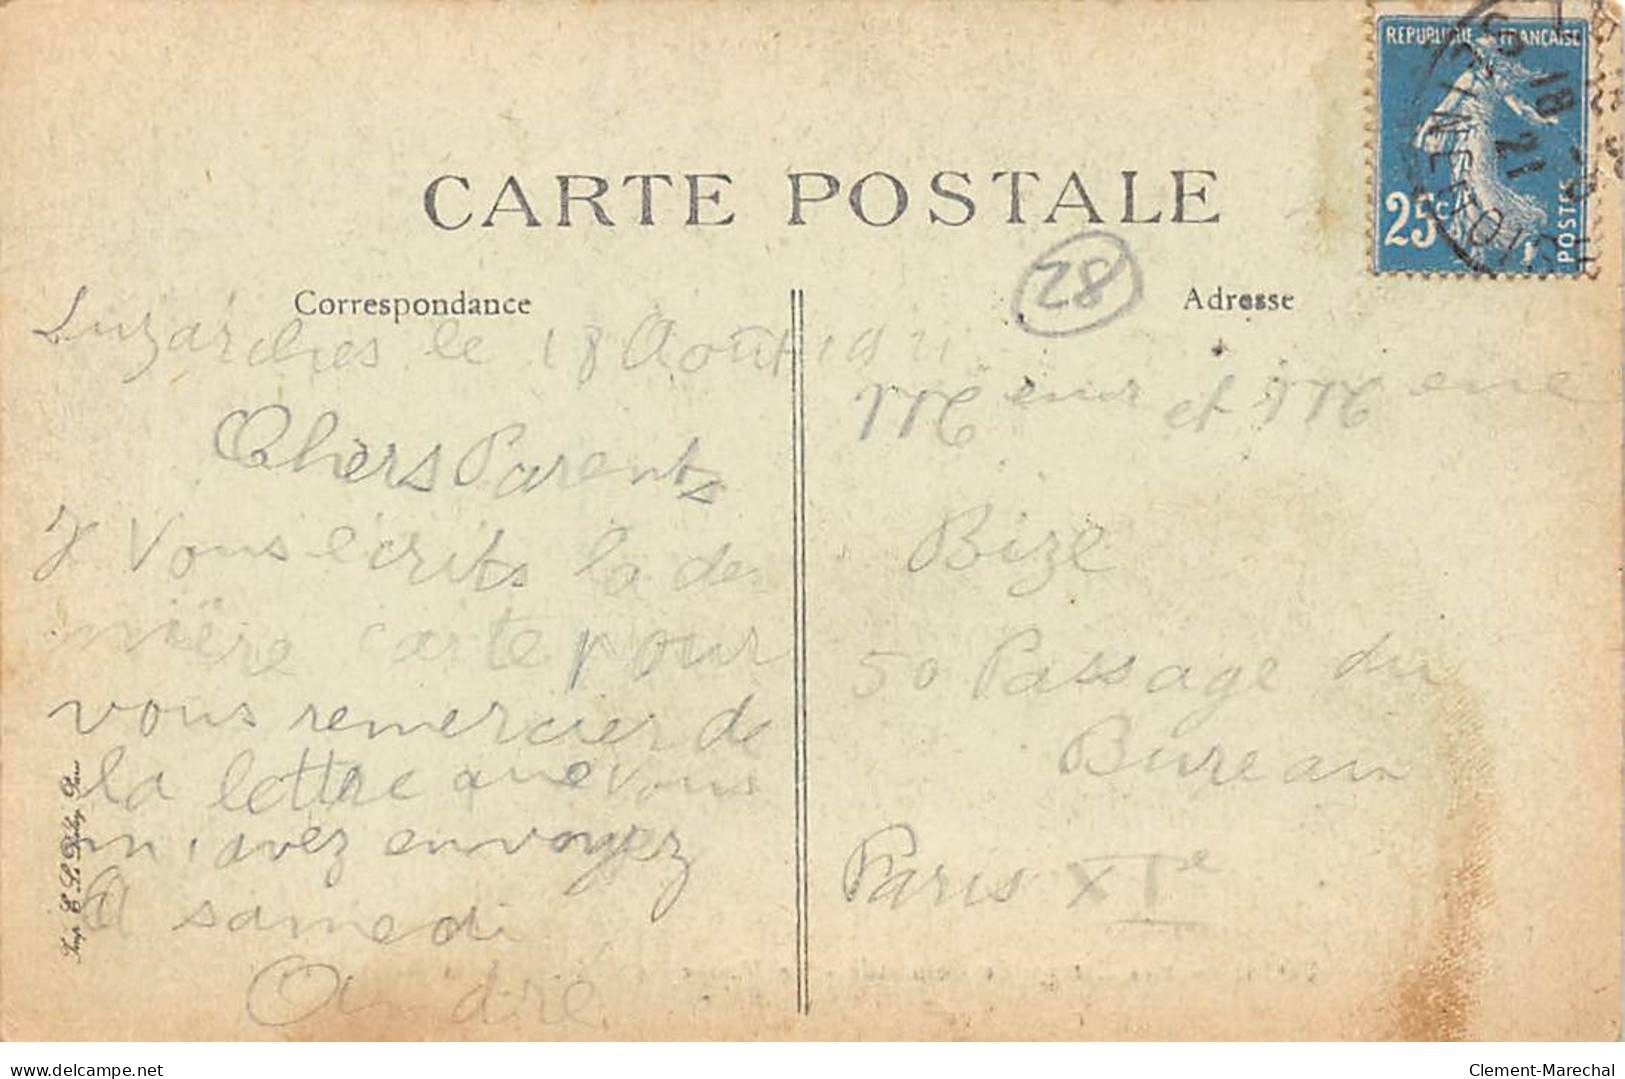 RÉPUBLIQUE FRANÇAISE
25c
POSTES
SEINE-ET-OISE
18 -8
21
CARTE POSTALE
28
Correspondance
Adresse
Luzarches le 18 Août 1921
Chers Parents
J Vous écrits la der
nière carte pour
vous remercier de
la lettre que vous
m'avez envoyez
A samedi
André
M eieur et M eme
Bize
50 Passage du
Bureau
Paris XIe
Imp. E. Le Deley, Paris
delcampe.net
Clement-Marechal